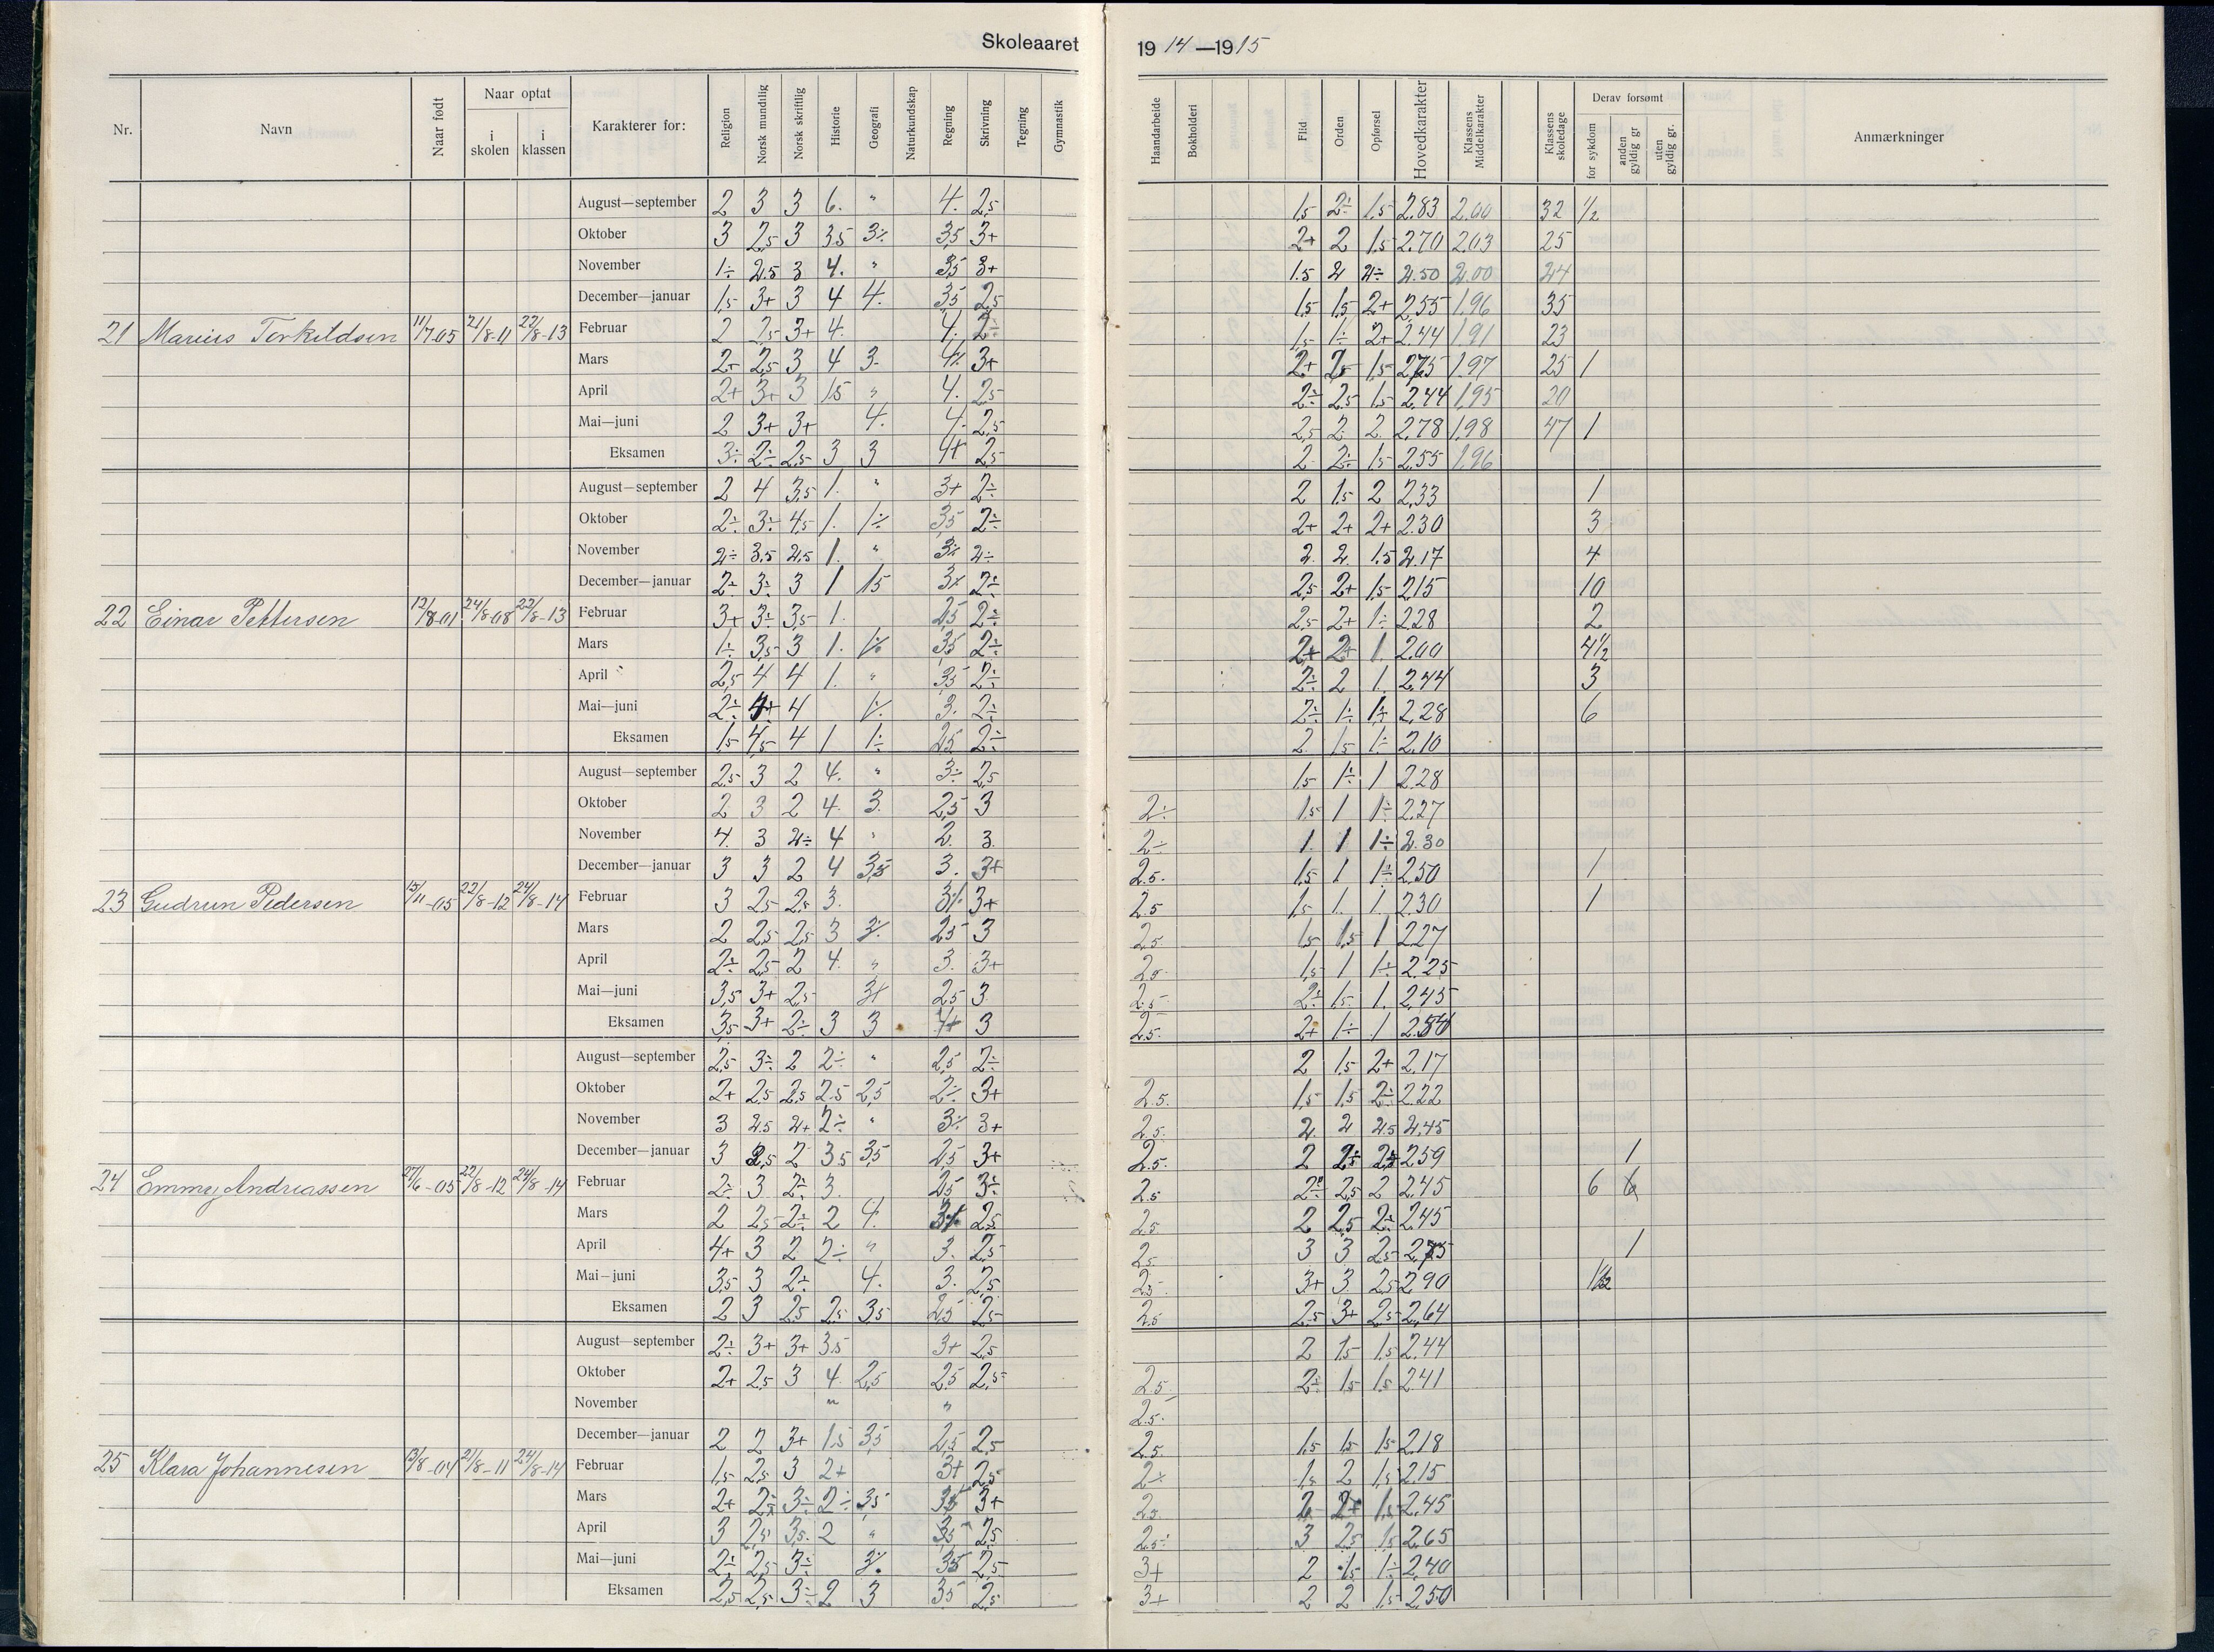 Skoleaaret 1914—1915
Nr. Navn Naar født Naar optat i skolen i klassen Karakterer for: Religion Norsk mundtlig Norsk skriftlig Historie Geografi Naturkundskap Regning Skrivning Tegning Gymnastik Haandarbeide Bokholderi Flid Orden Opførsel Hovedkarakter Klassens Middelkarakter Klassens skoledage Derav forsømt for sykdom anden gyldig gr uten gyldig gr. Anmærkninger
August—september 2 3 3 6. " 4. 2,5 1,5 2÷ 1,5 2.83 2.00 32 1/2
Oktober 3 2,5 3 3.5 3÷ 3,5 3+ 2+ 2 1,5 2.70 2.03 25
November 1÷ 2.5 3 4. " 3,5 3+ 1.5 2 2÷ 2.50 2.00 24
December—januar 1,5 3+ 3 4 4. 3,5 2,5 1,5 1,5 2+ 2,55 1,96 35
21 Marius Torkildsen 11/7-05 21/8-11 22/8-13 Februar 2 2,5 3+ 4. 4. 2÷ 1,5 1÷ 2+ 2.44 1,91 23
Mars 2+ 2,5 3 4 3. 4÷ 3+ 2+ 2,5 1,5 2,75 1,97 25 1
April 2+ 3+ 3 1,5 " 4. 2,5 2÷ 2,5 1,5 2,44 1,95 20
Mai—juni 2 3+ 3+ 4. 4. 2,5 2,5 2 2 2,78 1,98 47 1
Eksamen 3÷ 2÷ 2,5 3 3 4+ 2,5 2 2÷ 1,5 2,55 1,96
August—september 2 4 3,5 1. " 3+ 2÷ 2 1,5 2 2,33 1
Oktober 2÷ 3÷ 4,5 1. 1÷ 3,5 2÷ 2+ 2+ 2+ 2.30 3
November 2÷ 3,5 2,5 1. " 3÷ 2÷ 2. 2. 1.5 2.17 4
December—januar 2÷ 3÷ 3 1 1,5 3÷ 2÷ 2,5 2+ 1,5 2,15 10
22 Einar Pettersen 12/8-01 24/8-08 22/8-13 Februar 3+ 3÷ 3,5 1. 2,5 2÷ 2,5 2+ 1÷ 2.28 2
Mars 1÷ 3,5 3 1. 1÷ 3,5 2÷ 2+ 2+ 1. 2.00 4 1/2
April 2,5 4 4 1. " 3,5 2÷ 2÷ 2 1. 2,44 3
Mai—juni 2÷ 4+ 4 1÷ 3. 2÷ 2÷ 1÷ 1÷ 2,28 6
Eksamen 1,5 4,5 4 1 1÷ 2,5 2÷ 2 1,5 1÷ 2,10
August—september 2,5 3 2 4. " 3÷ 2,5 1,5 1÷ 1 2.28
Oktober 2 3 2 4. 3. 2,5 3 2÷ 1,5 1 1÷ 2,27
November 4. 3 2÷ 4 " 2. 3. 2÷ 1. 1 1÷ 2.30
December—januar 3 3 2 4 3,5 3. 3+ 2.5. 1,5 1 1÷ 2,50 1
23 Gudrun Pedersen 15/11-05 22/8-12 24/8-14 Februar 3 2,5 2,5 3. 3÷ 3+ 2.5 1,5 1. 1. 2.30 1
Mars 2 2,5 2,5 3 3÷ 2,5 3 2.5. 1,5 1,5 1 2,27
April 2÷ 2,5 2 4. " 3. 3+ 2.5. 1,5 1 1÷ 2.25
Mai—juni 3,5 3+ 2,5 3+ 2,5 3. 2.5 2÷ 1,5 1. 2,45
Eksamen 3,5 3+ 2÷ 3 3 4+ 3 2.5. 2+ 1÷ 1 2.54
August—september 2,5 3÷ 2 2÷ " 2,5 2÷ 2 1,5 2+ 2,17
Oktober 2+ 2,5 2,5 2,5 2,5 2÷ 3+ 2.5. 1,5 1,5 2÷ 2.22
November 3 2.5 2+ 2÷ " 3÷ 3+ 2.5. 2. 2 2.5 2,45
December—januar 3 2,5 2 3,5 3,5 2,5 3+ 2.5. 2 2÷ 2,5 2,59 1
24 Emmy Andreassen 27/6-05 22/8-12 24/8-14 Februar 2÷ 3 2÷ 3. 2,5 3÷ 2.5 2÷ 2,5 2 2,45 6
Mars 2 2,5 2÷ 2 4. 3÷ 2,5 2.5 2 2,5 2÷ 2,45
April 4+ 3 2 2÷ " 3. 2,5 2.5 3 3 2,5 2,75 1
Mai—juni 3,5 3 2÷ 4. 3. 2,5 2.5 3+ 3. 2,5 2,90 1 1/2
Eksamen 2 3 2,5 2,5 3,5 2,5 2,5 2.5 2,5 3+ 2,5 2,64
August—september 2÷ 3+ 3+ 3.5 3+ 2,5 2 1,5 1,5 2.44
Oktober 2+ 2,5 3 4. 2,5 2,5 2,5 2.5. 2÷ 1,5 1,5 2.41
November " " 2.5.
December—januar 2 2 3+ 1.5 3,5 2,5 2,5 2.5. 1,5 1,5 1,5 2,18
25 Klara Johannesen 13/8-04 21/8-11 24/8-14 Februar 1,5 2,5 3 2+ 3+ 2,5 2÷ 1,5 2 1,5 2.15
Mars 2+ 2÷ 3÷ 2÷ 3,5 3,5 3+ 2.5. 2 2+ 1,5 2,45
April 3 2,5 3,5. 2 " 3,5 2,5 2.5. 3 2,5 1,5 2,65
Mai—juni 2÷ 2,5 3÷ 3÷ 3,5 2,5 3+ 2 1,5 1÷ 2,40
Eksamen 2,5 2,5 3÷ 2 3 3,5 2,5 3+ 2 2 1,5 2,50